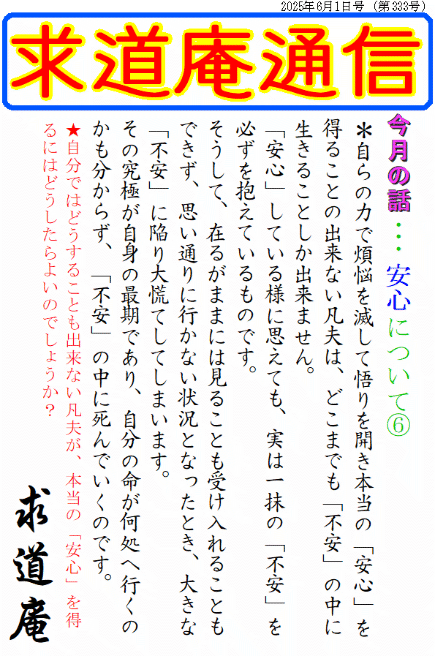 2025年6月1日号（第333号）
求道庵通信
今月の話…安心について⑥
＊自らの力で煩悩を滅して悟りを開き本当の「安心」を
得ることの出来ない凡夫は、どこまでも「不安」の中に
生きることしか出来ません。
「安心」している様に思えても、実は一抹の「不安」を
必ずを抱えているものです。
そうして、在るがままには見ることも受け入れることも
できず、思い通りに行かない状況となったとき、大きな
「不安」に陥り大慌てしてしまいます。
その究極が自身の最期であり、自分の命が何処へ行くの
かも分からず、「不安」の中に死んでいくのです。
★自分ではどうすることも出来ない凡夫が、本当の「安心」を得
るにはどうしたらよいのでしょうか？
求道庵